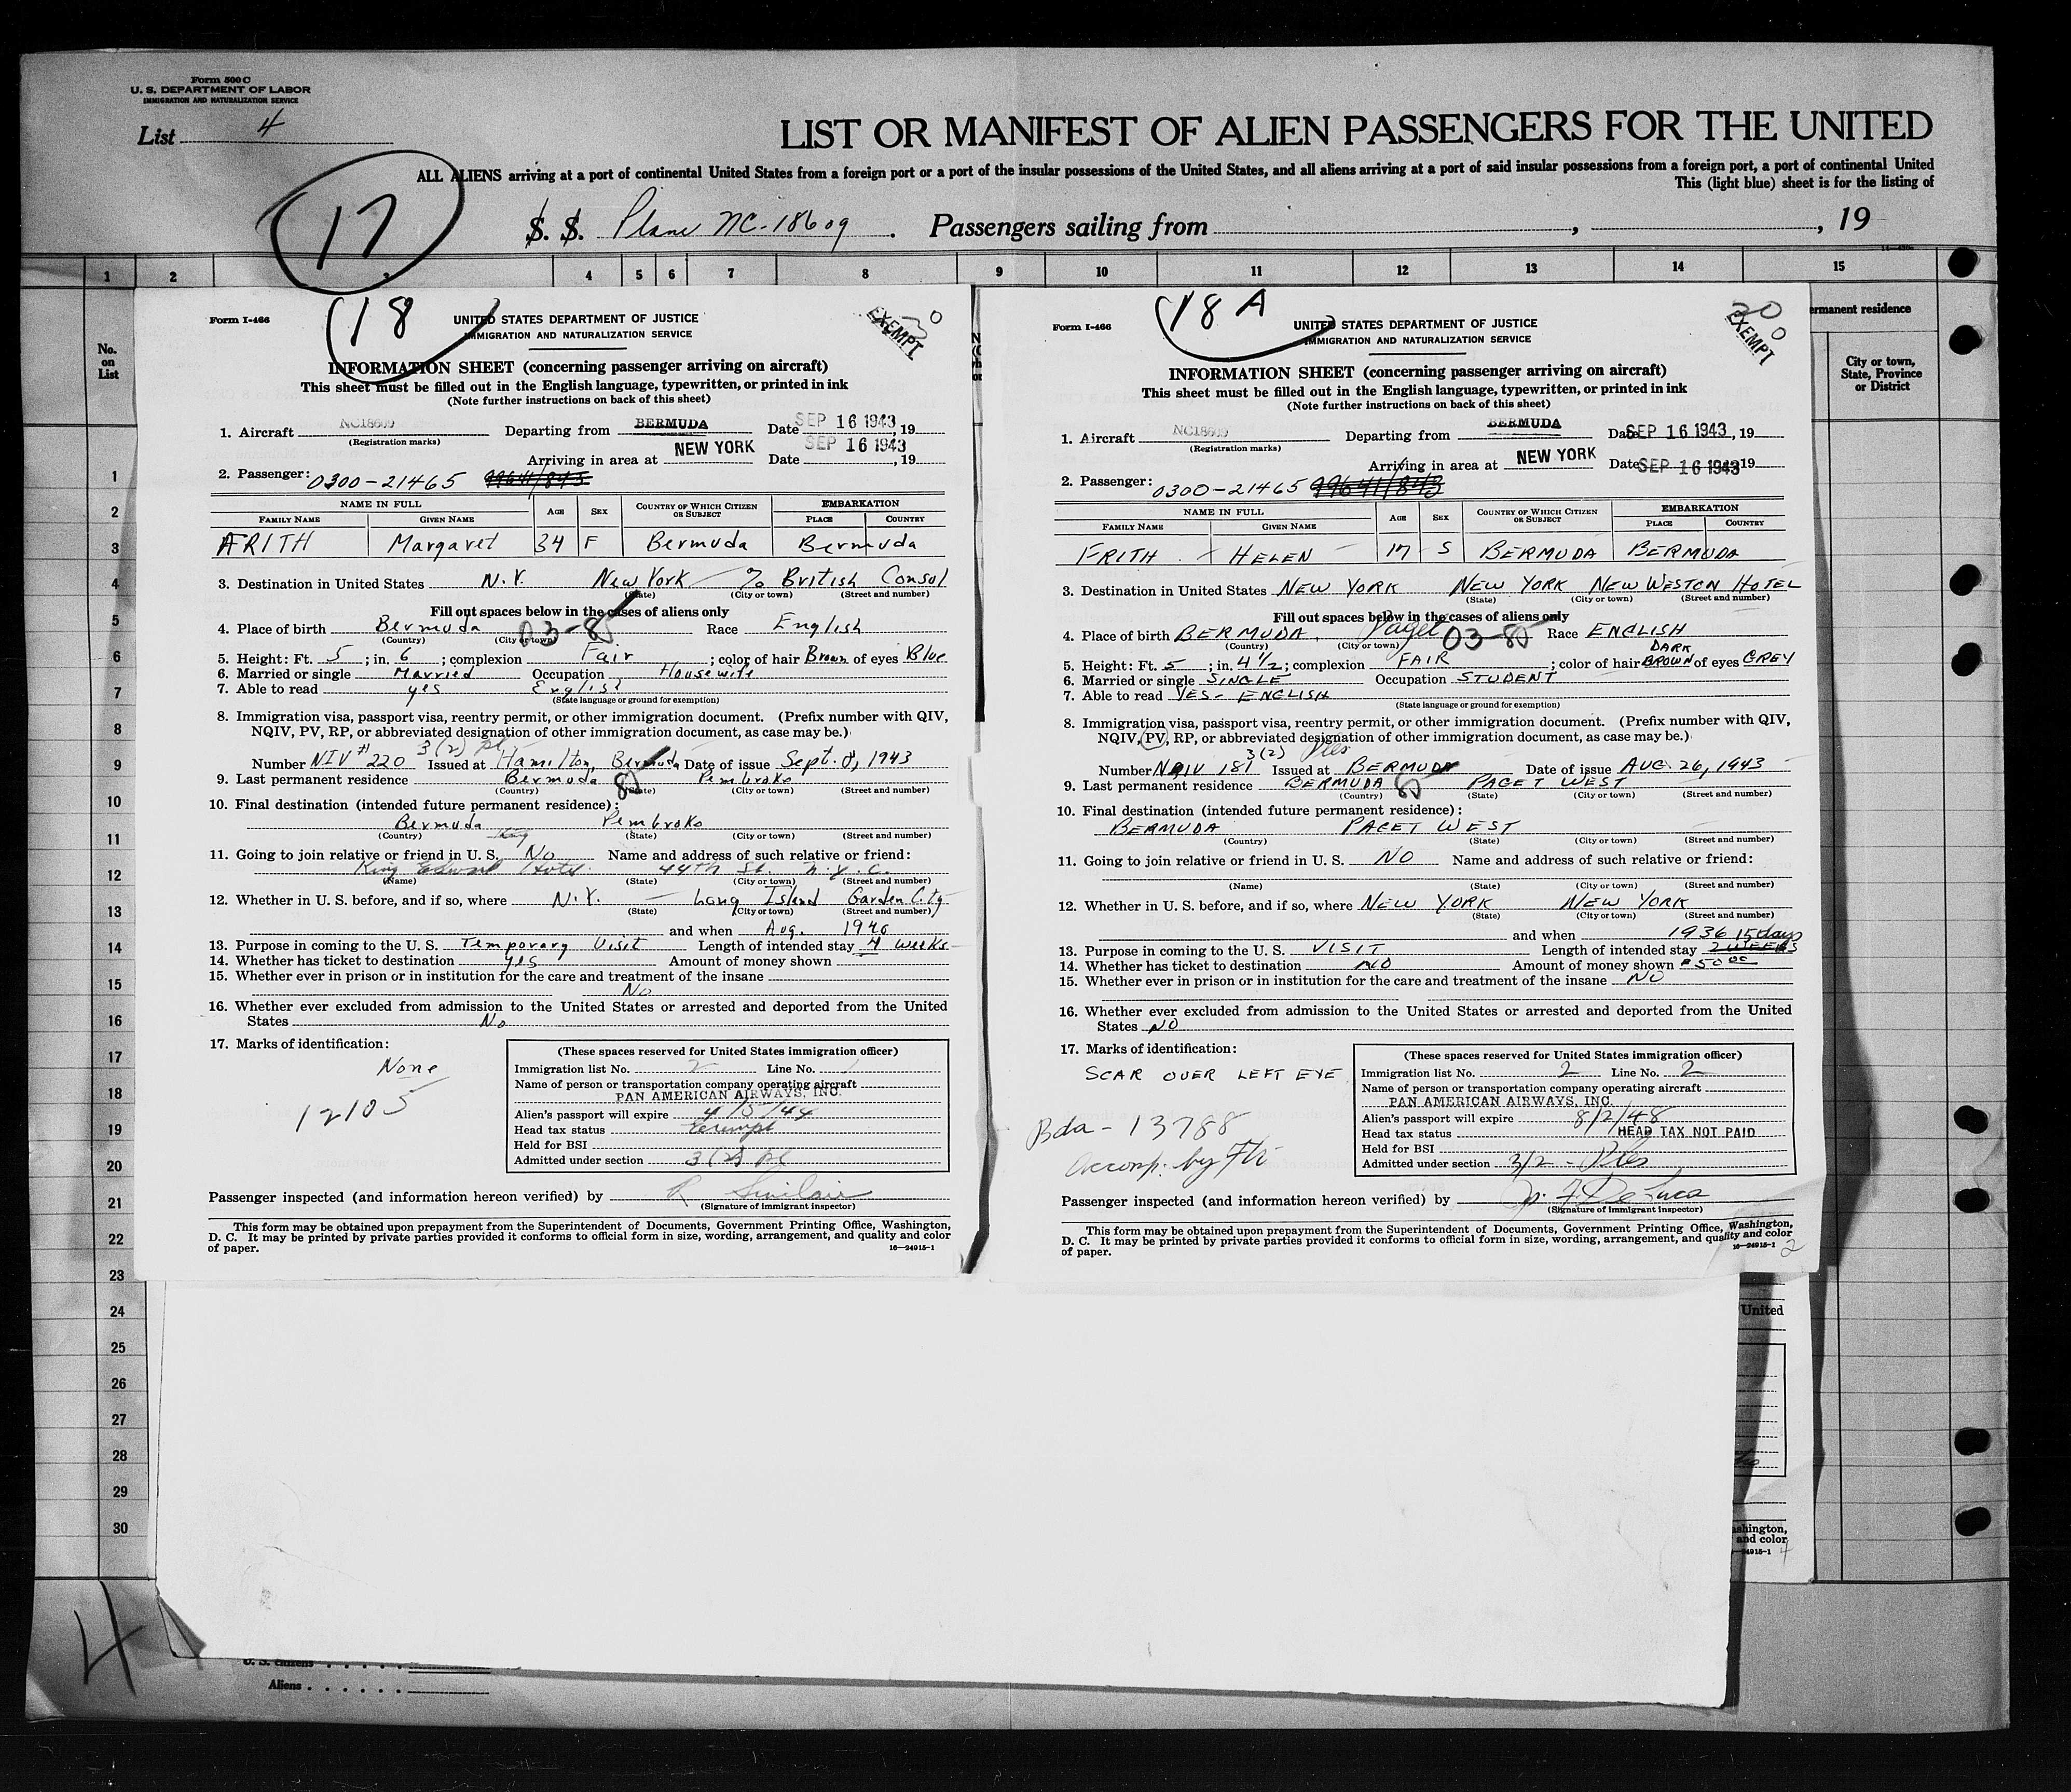 Form 500 C
U. S. DEPARTMENT OF LABOR
IMMIGRATION AND NATURALIZATION SERVICE
List 4
LIST OR MANIFEST OF ALIEN PASSENGERS FOR THE UNITED
ALL ALIENS arriving at a port of continental United States from a foreign port or a port of the insular possessions of the United States, and all aliens arriving at a port of said insular possessions from a foreign port, a port of continental United
This (light blue) sheet is for the listing of
17
S. S. Plane NC-18609. Passengers sailing from , , 19
1 2 3 4 5 6 7 8 9 10 11 12 13 14 15
No. on List
ermanent residence
City or town, State, Province or District
1
2
3
4
5
6
7
8
9
10
11
12
13
14
15
16
17
18
19
20
21
22
23
24
25
26
27
28
29
30
Form I-466
18
UNITED STATES DEPARTMENT OF JUSTICE
IMMIGRATION AND NATURALIZATION SERVICE
EXEMPT
0
INFORMATION SHEET (concerning passenger arriving on aircraft)
This sheet must be filled out in the English language, typewritten, or printed in ink
(Note further instructions on back of this sheet)
1. Aircraft NC18609 Departing from BERMUDA Date SEP 16 1943, 19
(Registration marks)
Arriving in area at NEW YORK Date SEP 16 1943, 19
2. Passenger: 0300-21465 99641/843
NAME IN FULL AGE SEX COUNTRY OF WHICH CITIZEN OR SUBJECT EMBARKATION
FAMILY NAME GIVEN NAME PLACE COUNTRY
FRITH Margaret 34 F Bermuda Bermuda
3. Destination in United States N.Y. New York % British Consul
(State) (City or town) (Street and number)
Fill out spaces below in the cases of aliens only
4. Place of birth Bermuda 03-85 Race English
(Country) (City or town)
5. Height: Ft. 5; in. 6; complexion Fair; color of hair Brown of eyes Blue
6. Married or single Married Occupation Housewife
7. Able to read yes English
(State language or ground for exemption)
8. Immigration visa, passport visa, reentry permit, or other immigration document. (Prefix number with QIV,
NQIV, PV, RP, or abbreviated designation of other immigration document, as case may be.)
3(2) pl
Number NIV #220 Issued at Hamilton, Bermuda Date of issue Sept. 8, 1943
9. Last permanent residence Bermuda 85 Pembroke
(Country) (State) (City or town) (Street and number)
10. Final destination (intended future permanent residence):
Bermuda Pembroke
(Country) (State) (City or town) (Street and number)
11. Going to join relative or friend in U. S. No Name and address of such relative or friend:
King Edward Hotel 44th St. N.Y.C.
(Name) (State) (City or town) (Street and number)
12. Whether in U. S. before, and if so, where N.Y. Long Island Garden City
(State) (City or town) (Street and number)
and when Aug. 1940
13. Purpose in coming to the U. S. Temporary Visit Length of intended stay 4 weeks
14. Whether has ticket to destination yes Amount of money shown
15. Whether ever in prison or in institution for the care and treatment of the insane
No
16. Whether ever excluded from admission to the United States or arrested and deported from the United
States No
17. Marks of identification:
None
12105
(These spaces reserved for United States immigration officer)
Immigration list No. 2 Line No. 1
Name of person or transportation company operating aircraft
PAN AMERICAN AIRWAYS, INC.
Alien's passport will expire 4/5/44
Head tax status Exempt
Held for BSI
Admitted under section 3(2) pl
Passenger inspected (and information hereon verified) by R Sinclair
(Signature of immigrant inspector)
This form may be obtained upon prepayment from the Superintendent of Documents, Government Printing Office, Washington,
D. C. It may be printed by private parties provided it conforms to official form in size, wording, arrangement, and quality and color
of paper.
16—24915-1
Form I-466
18 A
UNITED STATES DEPARTMENT OF JUSTICE
IMMIGRATION AND NATURALIZATION SERVICE
EXEMPT
0
INFORMATION SHEET (concerning passenger arriving on aircraft)
This sheet must be filled out in the English language, typewritten, or printed in ink
(Note further instructions on back of this sheet)
1. Aircraft NC18609 Departing from BERMUDA Date SEP 16 1943, 19
(Registration marks)
Arriving in area at NEW YORK Date SEP 16 1943 19
2. Passenger: 0300-21465 99641/843
NAME IN FULL AGE SEX COUNTRY OF WHICH CITIZEN OR SUBJECT EMBARKATION
FAMILY NAME GIVEN NAME PLACE COUNTRY
FRITH HELEN 17 S BERMUDA BERMUDA
3. Destination in United States NEW YORK NEW YORK NEW WESTON HOTEL
(State) (City or town) (Street and number)
Fill out spaces below in the cases of aliens only
4. Place of birth BERMUDA. Paget 03-85 Race ENGLISH
(Country) (City or town)
DARK
5. Height: Ft. 5; in. 4 1/2; complexion FAIR; color of hair BROWN of eyes GREY
6. Married or single SINGLE Occupation STUDENT
7. Able to read YES - ENGLISH
(State language or ground for exemption)
8. Immigration visa, passport visa, reentry permit, or other immigration document. (Prefix number with QIV,
NQIV, PV, RP, or abbreviated designation of other immigration document, as case may be.)
3(2)
Number NQIV 181 Issued at BERMUDA Date of issue AUG. 26, 1943
9. Last permanent residence BERMUDA 85 PAGET WEST
(Country) (State) (City or town) (Street and number)
10. Final destination (intended future permanent residence):
BERMUDA PAGET WEST
(Country) (State) (City or town) (Street and number)
11. Going to join relative or friend in U. S. NO Name and address of such relative or friend:
(Name) (State) (City or town) (Street and number)
12. Whether in U. S. before, and if so, where NEW YORK NEW YORK
(State) (City or town) (Street and number)
and when 1936 15 days
13. Purpose in coming to the U. S. VISIT Length of intended stay 2 WEEKS
14. Whether has ticket to destination NO Amount of money shown $50.00
15. Whether ever in prison or in institution for the care and treatment of the insane NO
16. Whether ever excluded from admission to the United States or arrested and deported from the United
States NO
17. Marks of identification:
SCAR OVER LEFT EYE
Bda - 13788
Accomp. by
(These spaces reserved for United States immigration officer)
Immigration list No. 2 Line No. 2
Name of person or transportation company operating aircraft
PAN AMERICAN AIRWAYS, INC.
Alien's passport will expire 8/2/48
Head tax status HEAD TAX NOT PAID
Held for BSI
Admitted under section 3/2 -
Passenger inspected (and information hereon verified) by De Luca
(Signature of immigrant inspector)
This form may be obtained upon prepayment from the Superintendent of Documents, Government Printing Office, Washington,
D. C. It may be printed by private parties provided it conforms to official form in size, wording, arrangement, and quality and color
of paper.
16—24915-1
2
United
ashington,
and color
24915-1
4
4
U. S. citizens
Aliens